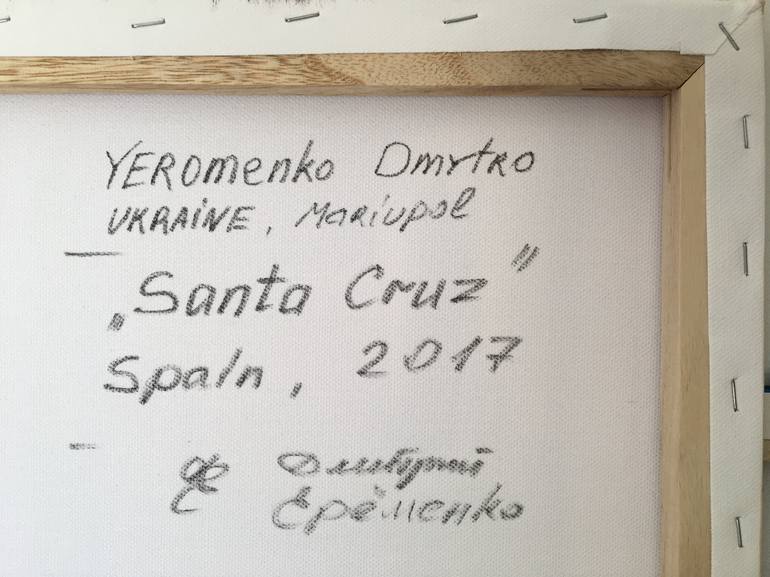 YEROMENKO Dmytro
UKRAINE, Mariupol
„Santa Cruz”
Spain, 2017
Дмитрий
Ерёменко